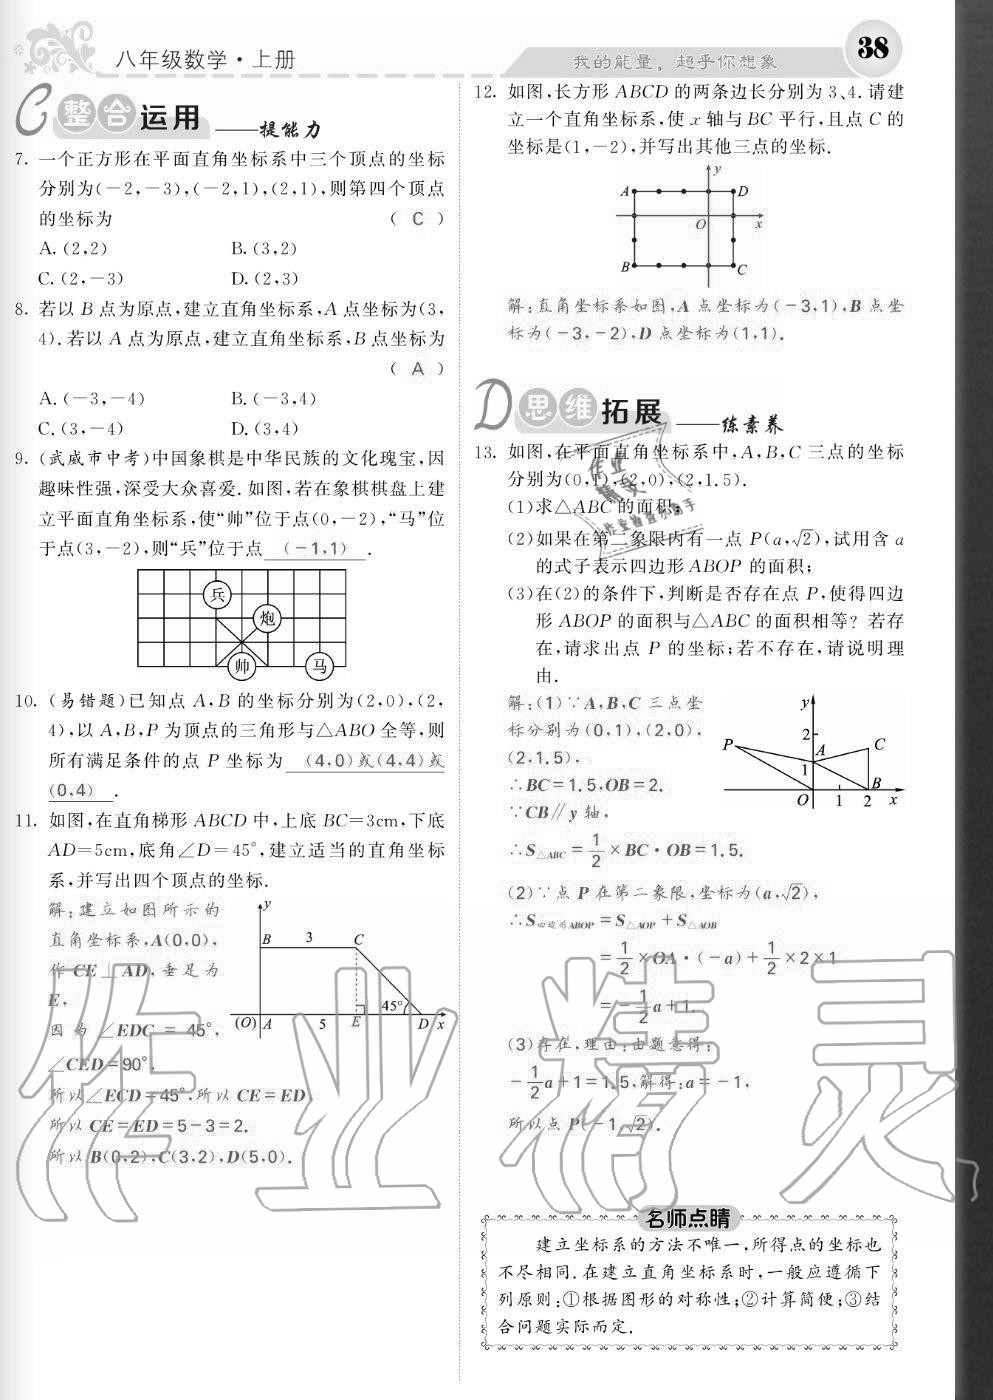 八年级数学·上册
我的能量，超乎你想象
38
C 整合运用 ——提能力
7. 一个正方形在平面直角坐标系中三个顶点的坐标
分别为(－2,－3),(－2,1),(2,1),则第四个顶点
的坐标为 ( C )
A. (2,2) B. (3,2)
C. (2,－3) D. (2,3)
8. 若以 B 点为原点,建立直角坐标系,A 点坐标为(3,
4).若以 A 点为原点,建立直角坐标系,B 点坐标为
( A )
A. (－3,－4) B. (－3,4)
C. (3,－4) D. (3,4)
9. (武威市中考)中国象棋是中华民族的文化瑰宝,因
趣味性强,深受大众喜爱.如图,若在象棋棋盘上建
立平面直角坐标系,使“帅”位于点(0,－2),“马”位
于点(3,－2),则“兵”位于点 (－1,1) .
兵
炮
帅 马
10. (易错题)已知点 A,B 的坐标分别为(2,0),(2,
4),以 A,B,P 为顶点的三角形与△ABO 全等,则
所有满足条件的点 P 坐标为 (4,0)或(4,4)或
(0,4) .
11. 如图,在直角梯形 ABCD 中,上底 BC=3cm,下底
AD=5cm,底角∠D=45°,建立适当的直角坐标
系,并写出四个顶点的坐标.
解:建立如图所示的
直角坐标系,A(0,0),
作 CE⊥AD,垂足为
E,
因为∠EDC = 45°,
∠CED=90°,
所以∠ECD=45°,所以 CE=ED,
所以 CE=ED=5－3=2.
所以 B(0,2),C(3,2),D(5,0).
y
B 3 C
45°
(O) A 5 E D x
12. 如图,长方形 ABCD 的两条边长分别为 3、4.请建
立一个直角坐标系,使 x 轴与 BC 平行,且点 C 的
坐标是(1,－2),并写出其他三点的坐标.
y
A D
O x
B C
解:直角坐标系如图,A 点坐标为(－3,1),B 点坐
标为(－3,－2),D 点坐标为(1,1).
D 思维拓展 ——练素养
13. 如图,在平面直角坐标系中,A,B,C 三点的坐标
分别为(0,1),(2,0),(2,1.5).
(1)求△ABC 的面积;
(2)如果在第二象限内有一点 P(a,√2),试用含 a
的式子表示四边形 ABOP 的面积;
(3)在(2)的条件下,判断是否存在点 P,使得四边
形 ABOP 的面积与△ABC 的面积相等？若存
在,请求出点 P 的坐标;若不存在,请说明理
由.
解:(1)∵A,B,C 三点坐
标分别为(0,1),(2,0),
(2,1.5),
∴BC=1.5,OB=2.
∵CB∥y 轴,
∴S△ABC = 1/2 ×BC·OB=1.5.
y
2
P A C
1
B
O 1 2 x
(2)∵点 P 在第二象限,坐标为(a,√2),
∴S四边形ABOP = S△AOP + S△AOB
= 1/2 ×OA·(－a)+ 1/2 ×2×1
= － 1/2 a+1.
(3)存在,理由:由题意得:
－ 1/2 a+1=1.5,解得:a=－1,
所以点 P(－1,√2).
名师点睛
建立坐标系的方法不唯一,所得点的坐标也
不尽相同.在建立直角坐标系时,一般应遵循下
列原则:①根据图形的对称性;②计算简便;③结
合问题实际而定.
作业精灵